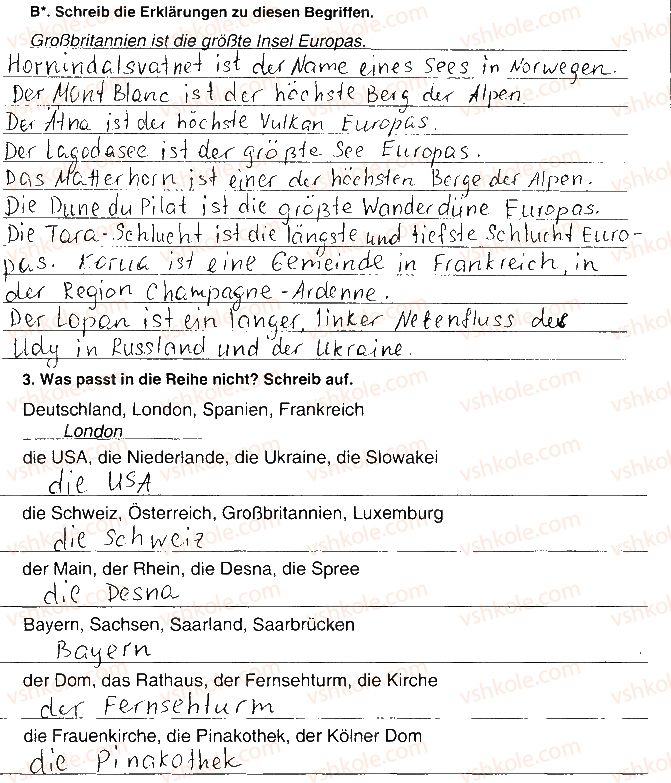 B*. Schreib die Erklärungen zu diesen Begriffen.
Großbritannien ist die größte Insel Europas.
Hornindalsvatnet ist der Name eines Sees in Norwegen.
Der Mont Blanc ist der höchste Berg der Alpen
Der Ätna ist der höchste Vulkan Europas.
Der Lagodasee ist der größte See Europas.
Das Matterhorn ist einer der höchsten Berge der Alpen.
Die Dune du Pilat ist die größte Wanderdüne Europas.
Die Tara-Schlucht ist die längste und tiefste Schlucht Euro-
pas. ist eine Gemeinde in Frankreich, in
der Region Champagne-Ardenne.
Der Lopan ist ein langer, linker Netenfluss des
Udy in Russland und der Ukraine.
3. Was passt in die Reihe nicht? Schreib auf.
Deutschland, London, Spanien, Frankreich
London
die USA, die Niederlande, die Ukraine, die Slowakei
die USA
die Schweiz, Österreich, Großbritannien, Luxemburg
die Schweiz
der Main, der Rhein, die Desna, die Spree
die Desna
Bayern, Sachsen, Saarland, Saarbrücken
Bayern
der Dom, das Rathaus, der Fernsehturm, die Kirche
der Fernsehturm
die Frauenkirche, die Pinakothek, der Kölner Dom
die Pinakothek